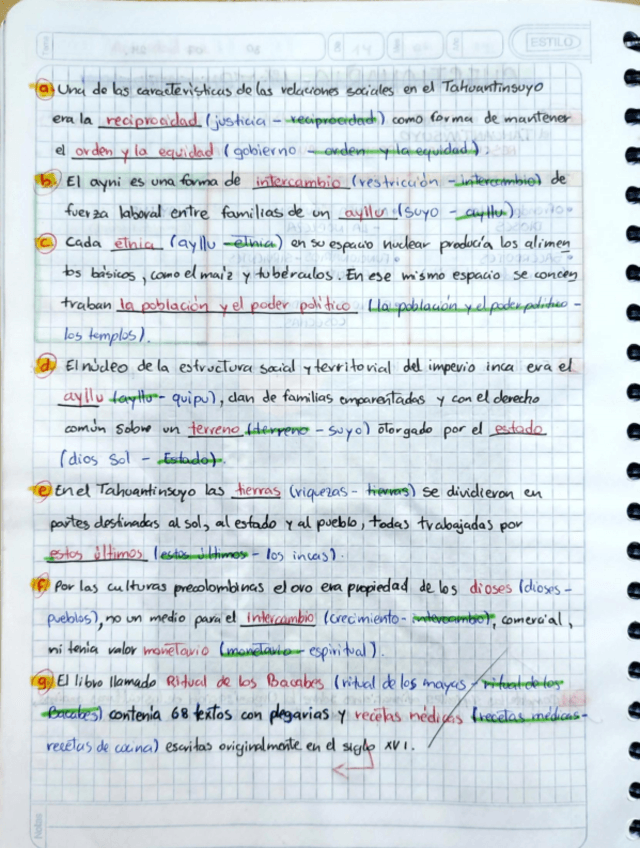 ESTILO
a. Una de las características de las relaciones sociales en el Tahuantinsuyo
era la reciprocidad (justicia - reciprocidad) como forma de mantener
el orden y la equidad (gobierno - orden y la equidad).
b. El ayni es una forma de intercambio (restricción - intercambio) de
fuerza laboral entre familias de un ayllu (suyo - ayllu)
c. Cada etnia (ayllu - etnia) en su espacio nuclear producía los alimen
tos básicos, como el maíz y tubérculos. En ese mismo espacio se concen
traban la población y el poder político (la población y el poder político -
los templos).
d. El núcleo de la estructura social y territorial del imperio inca era el
ayllu (ayllu - quipu), clan de familias emparentadas y con el derecho
común sobre un terreno (terreno - suyo) otorgado por el estado
(dios Sol - Estado).
e. En el Tahuantinsuyo las tierras (riquezas - tierras) se dividieron en
partes destinadas al sol, al estado y al pueblo, todas trabajadas por
estos últimos (estos últimos - los incas).
f. Por las culturas precolombinas el oro era propiedad de los dioses (dioses -
pueblos), no un medio para el intercambio (crecimiento - intercambio), comercial,
ni tenía valor monetario (monetario - espiritual).
g. El libro llamado Ritual de los Bacabes (ritual de los mayas - ritual de los
Bacabes) contenía 68 textos con plegarias y recetas médicas (recetas médicas -
recetas de cocina) escritas originalmente en el siglo XVI.
Notas